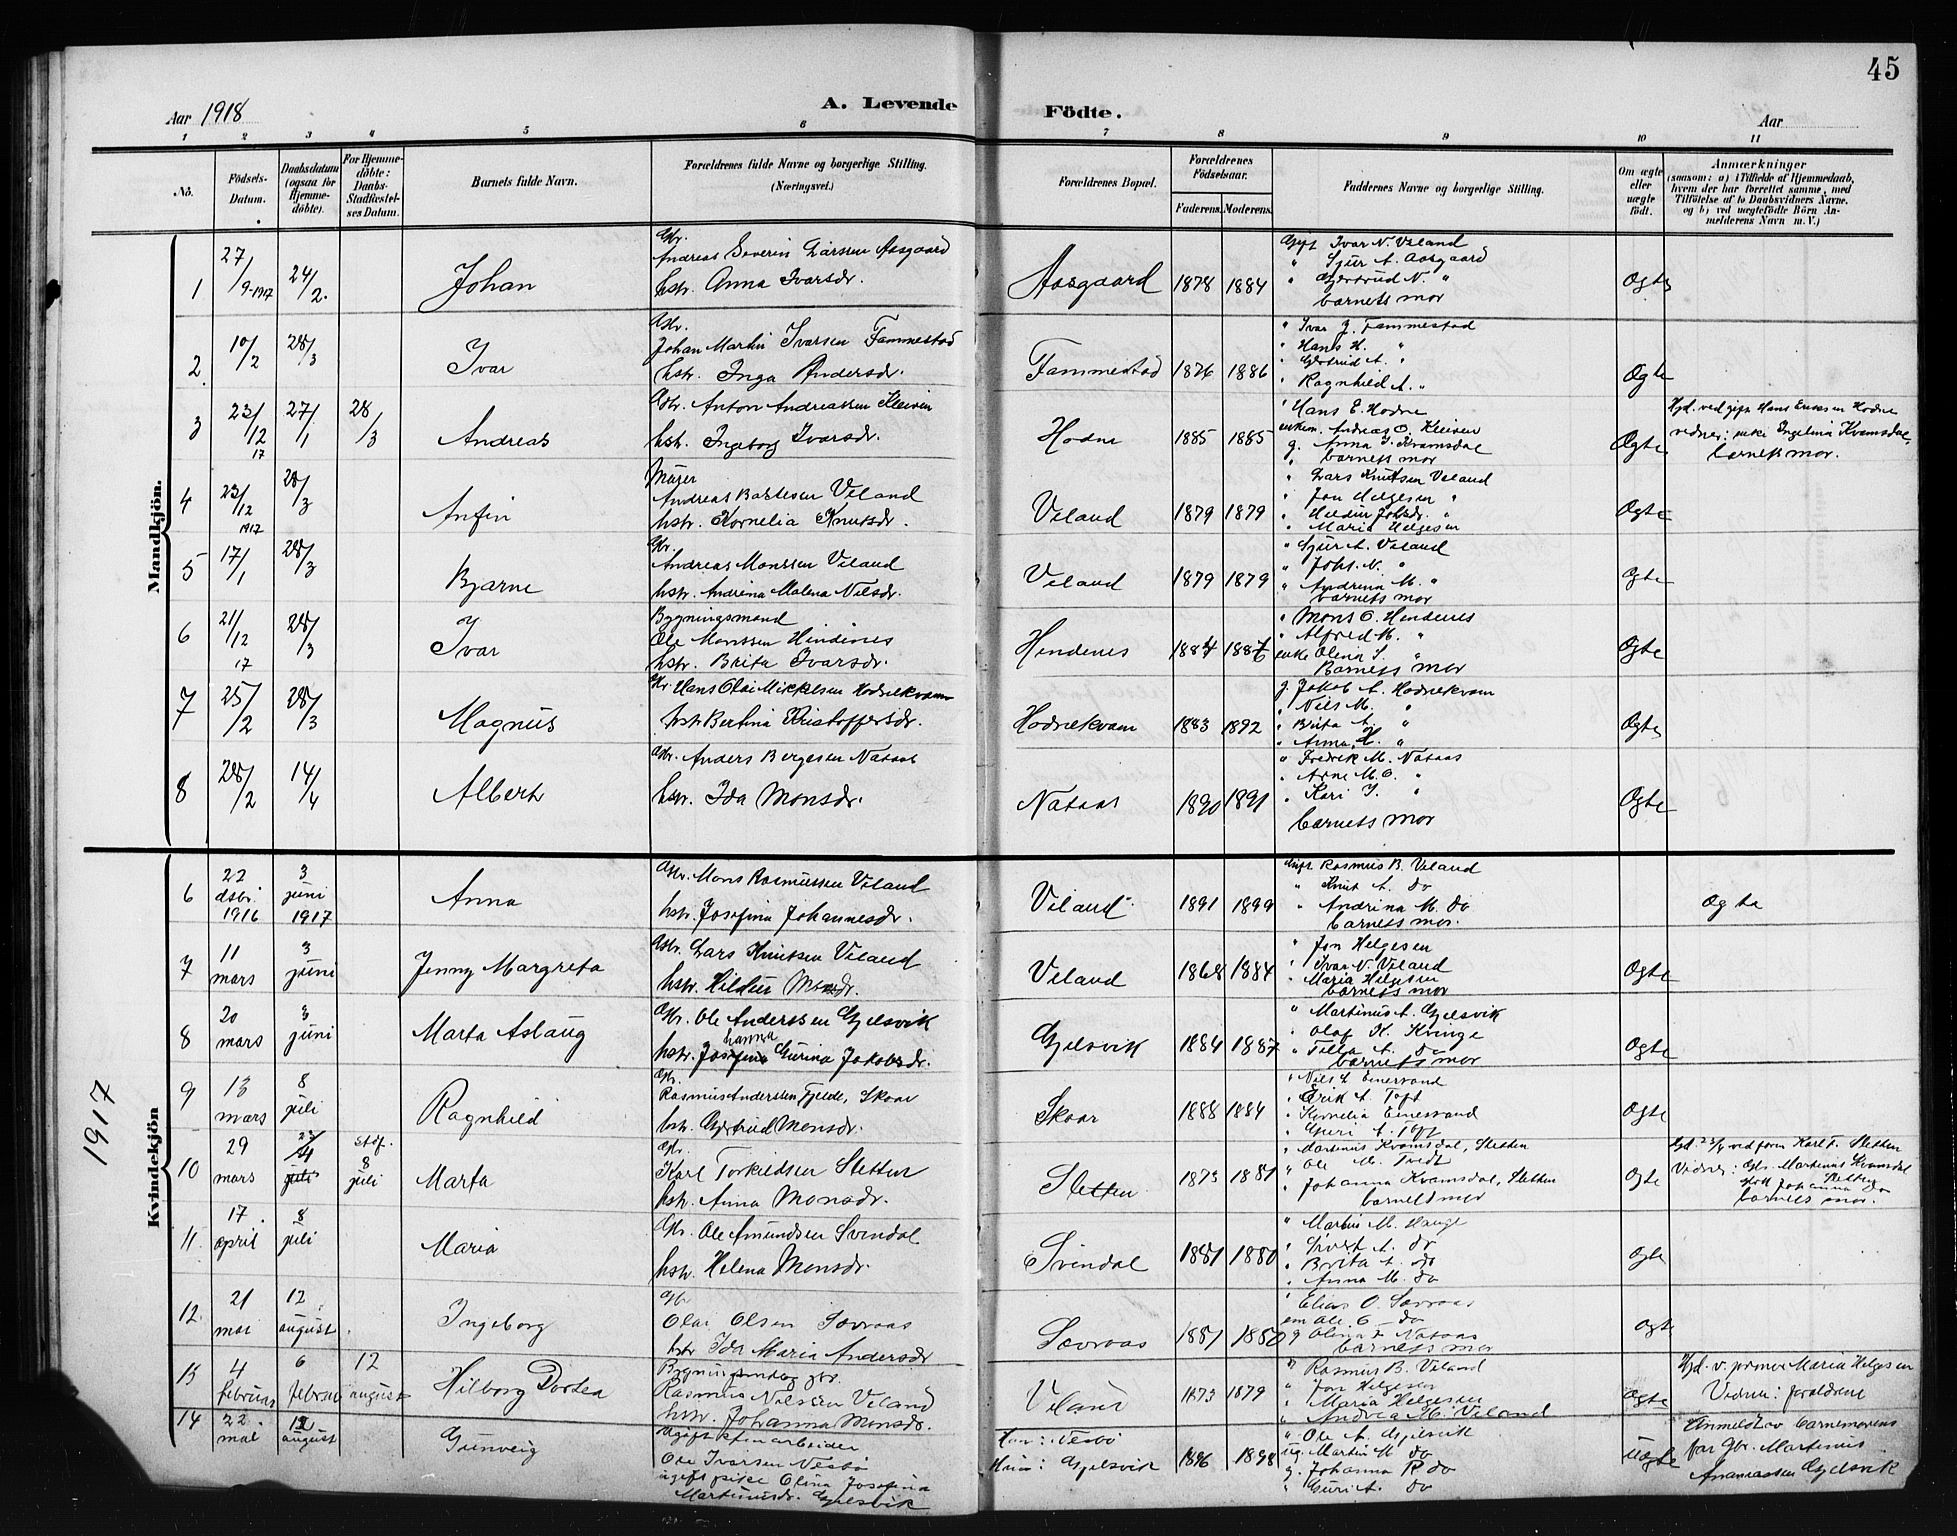 45
Aar 1918
A. Levende Födte.
Aar
1 2 3 4 5 6 7 8 9 10 11
No.
Födsels-Datum.
Daabsdatum (ogsaa for Hjemme-döbte).
For Hjemme-döbte: Daabs-Stadfæstel-ses Datum.
Barnets fulde Navn.
Forældrenes fulde Navne og borgerlige Stilling. (Næringsvei.)
Forældrenes Bopæl.
Forældrenes Födselsaar.
Faderens. Moderens.
Faddernes Navne og borgerlige Stilling.
Om ægte eller uægte födt.
Anmærkninger
(saasom: a) i Tilfælde af Hjemmedaab, hvem der har forrettet samme, med Tilföielse af to Daabsvidners Navne. og b) ved uægtefödte Börn Anmelderens Navn m. V.)
Mandkjön.
1 27/9-1917 24/2. Johan
Gbr. Andreas Severin Larssen Aasgaard
hstr. Anna Ivarsdr.
Aasgaard 1878 1884
Gift Ivar N. Veland
" Sjur A. Aasgaard
" Gjertrud N. "
barnets mor
Ogte
2. 10/2 28/3 Ivar
Gbr. Johan Martin Ivarsen Fammestad
hstr. Inga Andersdr.
Fammestad 1876 1886
" Ivar J. Fammestad
" Hans H. "
" Gjertrud A. "
" Ragnhild A. "
Ægte
3 23/12 17 27/1 28/3 Andreas
Gbr. Anton Andreassen Kleiven
hstr. Ingeborg Ivarsdr.
Hodne 1885 1885
" Hans E. Hodne
enkem. Andreas O. Kleiven
g. Anna I. Kvamsdal
" barnets mor
Ægte
Hjd. ved gift Hans Eriksen Hodne
vidner: enke Ingelina Kvamsdal,
barnets mor.
4 23/12 1917 28/3 Anfin
Murer
Andreas Bastesen Veland
hstr. Kornelia Knutsdr.
Veland 1879 1879
" Lars Knutsen Veland
" Jon Helgesen "
" Hildur Johsdr. "
" Maria Helgesen
Ogte
5 17/1 28/3 Bjarne
Gbr. Andreas Monssen Veland
hstr. Andrina Malena Nilsdr.
Veland 1879 1879
" Sjur A. Veland
" Johs. N. "
" Andrina M. "
barnets mor
Ogte
6 21/12 17 28/3 Ivar
Bygningsmand
Ole Monssen Hindenes
hstr. Brita Ivarsdr.
Hindenes 1884 1886
" Mons O. Hindenes
" Alfred M. "
enke Olena S. "
Barnets mor
Ogte
7 25/2 28/3 Magnus
Gbr. Hans Olai Mikkelsen Hodnekvam
hstr Bertina Kristoffersdr.
Hodnekvam 1883 1892
g. Jakob A. Hodnekvam
" Nils M. "
" Brita A. "
" Anna H. "
Ogte
8 28/2 14/4 Albert
Gbr. Anders Bergesen Nataas
hstr. Ida Monsdr.
Nataas 1890 1891
" Fredrik M. Nataas
" Arne M. O. "
" Kari I. "
barnets mor
Ogte
1917
Kvindekjön
6 22 dsbr. 1916 3 juni 1917 Anna
Gbr. Mons Rasmussen Veland
hstr. Josefina Johannesdr.
Veland 1891 1899
Gift. Rasmus B. Veland
" Knut A. do
" Andrina M. do
barnets mor.
Ogte
7 11 mars 3 juni Jenny Margreta
Gbr. Lars Knutsen Veland
hstr. Hildur Monsdr.
Veland 1868 1884
" Jon Helgesen
" Ivar N. Veland
" Maria Helgesen
barnets mor
Ogte
8 20 mars 3 juni Marta Aslaug
Gbr. Ole Anderssen Gjelsvik
hstr. Johanna Gurina Jakobsdr.
Gjelsvik 1884 1887
" Martinus A. Gjelsvik
" Olaf K. Kvinge
" Tilla A. do
barnets mor
Ogte
9 13 mars 8 juli Ragnhild
Gbr. Rasmus Andersen Fjelde, Skaar
hstr. Gjertrud Monsdr.
Skaar 1888 1884
" Nils L Einesvand
" Erik A. Toft
" Kornelia Einesvand
" Guri A. Toft
Ogte
10 29 mars juli stdf. 8 juli Marta
Gbr. Karl Torkildsen Sletten
hstr. Anna Monsdr.
Sletten 1873 1881
" Martinus Kvamsdal, Sletten
" Ole M. Tredt
" Johanna Kvamsdal, Sletten
barnets mor
Ogte
Hjd. ved farm Karl T. Sletten
Vidner: Gbr. Martinus Kvamsdal Sletten
Johanna do
barnets mor.
11. 17. april 8 juli Maria
Gbr. Ole Amundsen Svindal
hstr. Helena Monsdr.
Svindal 1881 1880
" Martin M. Hauge
" Sivert A. do
" Brita A. do
" Anna M. do
Ogte
12. 21 mai 12 august. Ingeborg
Gbr Olai Olsen Sævraas
hstr Ida Maria Andersdr
Sævraas 1881 1880
" Elias O. Sævraas
em Ole O do
g Olina F Nataas
barnets mor
Ogte
13 4 februar 6 februar 12 august Hilborg Dortea
Bygningsmand og gbr.
Rasmus Nilssen Veland
hstr. Johanna Monsdr.
Veland 1873 1879
" Rasmus B. Veland
" Jon Helgesen
" Maria Helgesen
" Andrea M. Veland
Ogte
Hjd. v. jormor Maria Helgesen
Vidner: foreldrene
14 22. mai 12 august Gunveig
Ugift stenarbeider
Ole Ivarsen Nesbø
ugift pike Olina Josefina
Martinusdr. Gjelsvik
Han: Nesbø
Hun: Gjelsvik 1896 1898
" Ole A. Gjelsvik
ug. Martin M do
g. Johanna R. do
" Guri A. do
Uegte
Anmeldt av barnemorens
far Gbr. Martinus
Ananiassen Gjelsvik